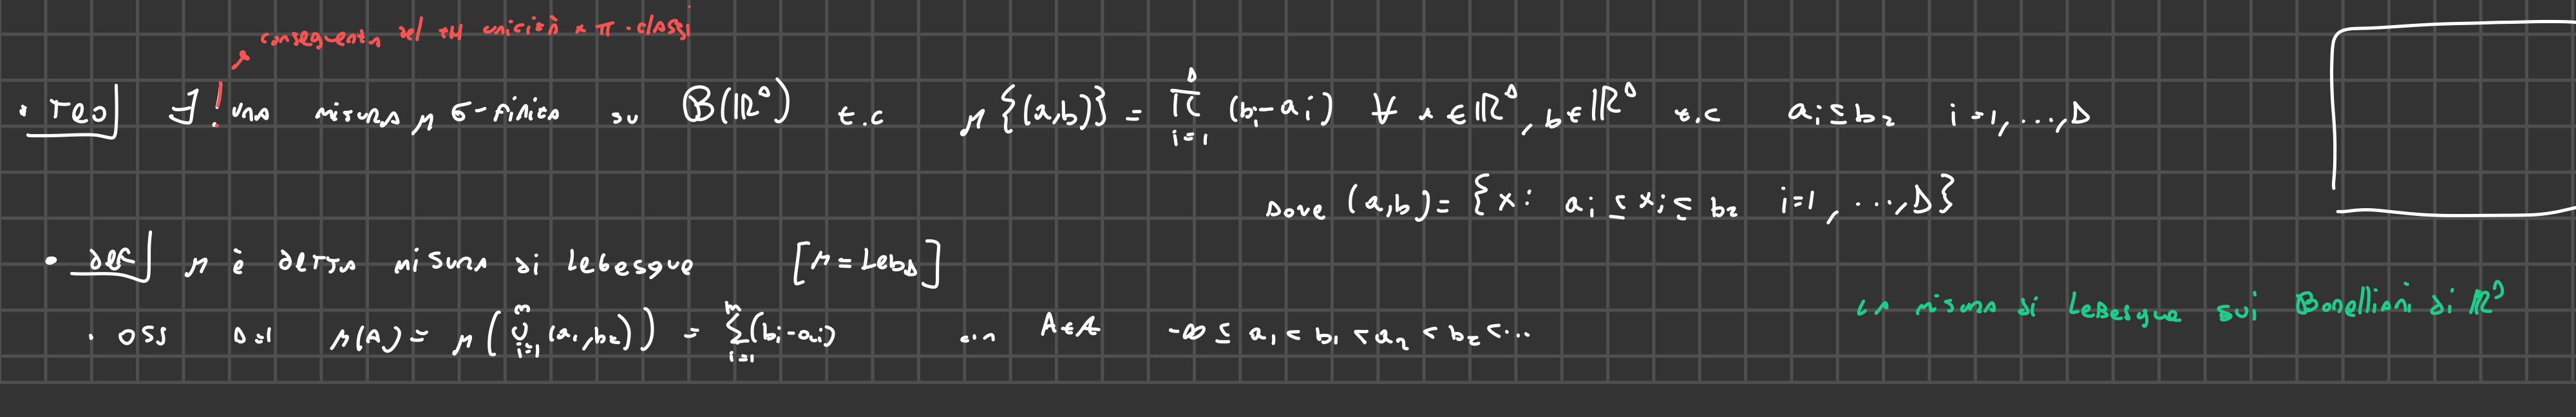 conseguenza del th unicità x π-classi
• teo] ∃! una misura μ σ-finita su B(ℝᴰ) t.c μ{(a,b)} = ∏_{i=1}^{D} (bᵢ-aᵢ) ∀ a ∈ ℝᴰ, b ∈ ℝᴰ t.c aᵢ ≤ bᵢ i=1,...,D
dove (a,b) = {x: aᵢ ≤ xᵢ ≤ bᵢ i=1,...,D}
• def] μ è detta misura di Lebesgue [μ = Leb_D]
la misura di Lebesgue sui Borelliani di ℝᴰ
• oss D=1 μ(A) = μ(∪_{i=1}^{m} (aᵢ,bᵢ)) = Σ_{i=1}^{m} (bᵢ-aᵢ) con A∈A -∞ ≤ a₁ < b₁ < a₂ < b₂ < ...